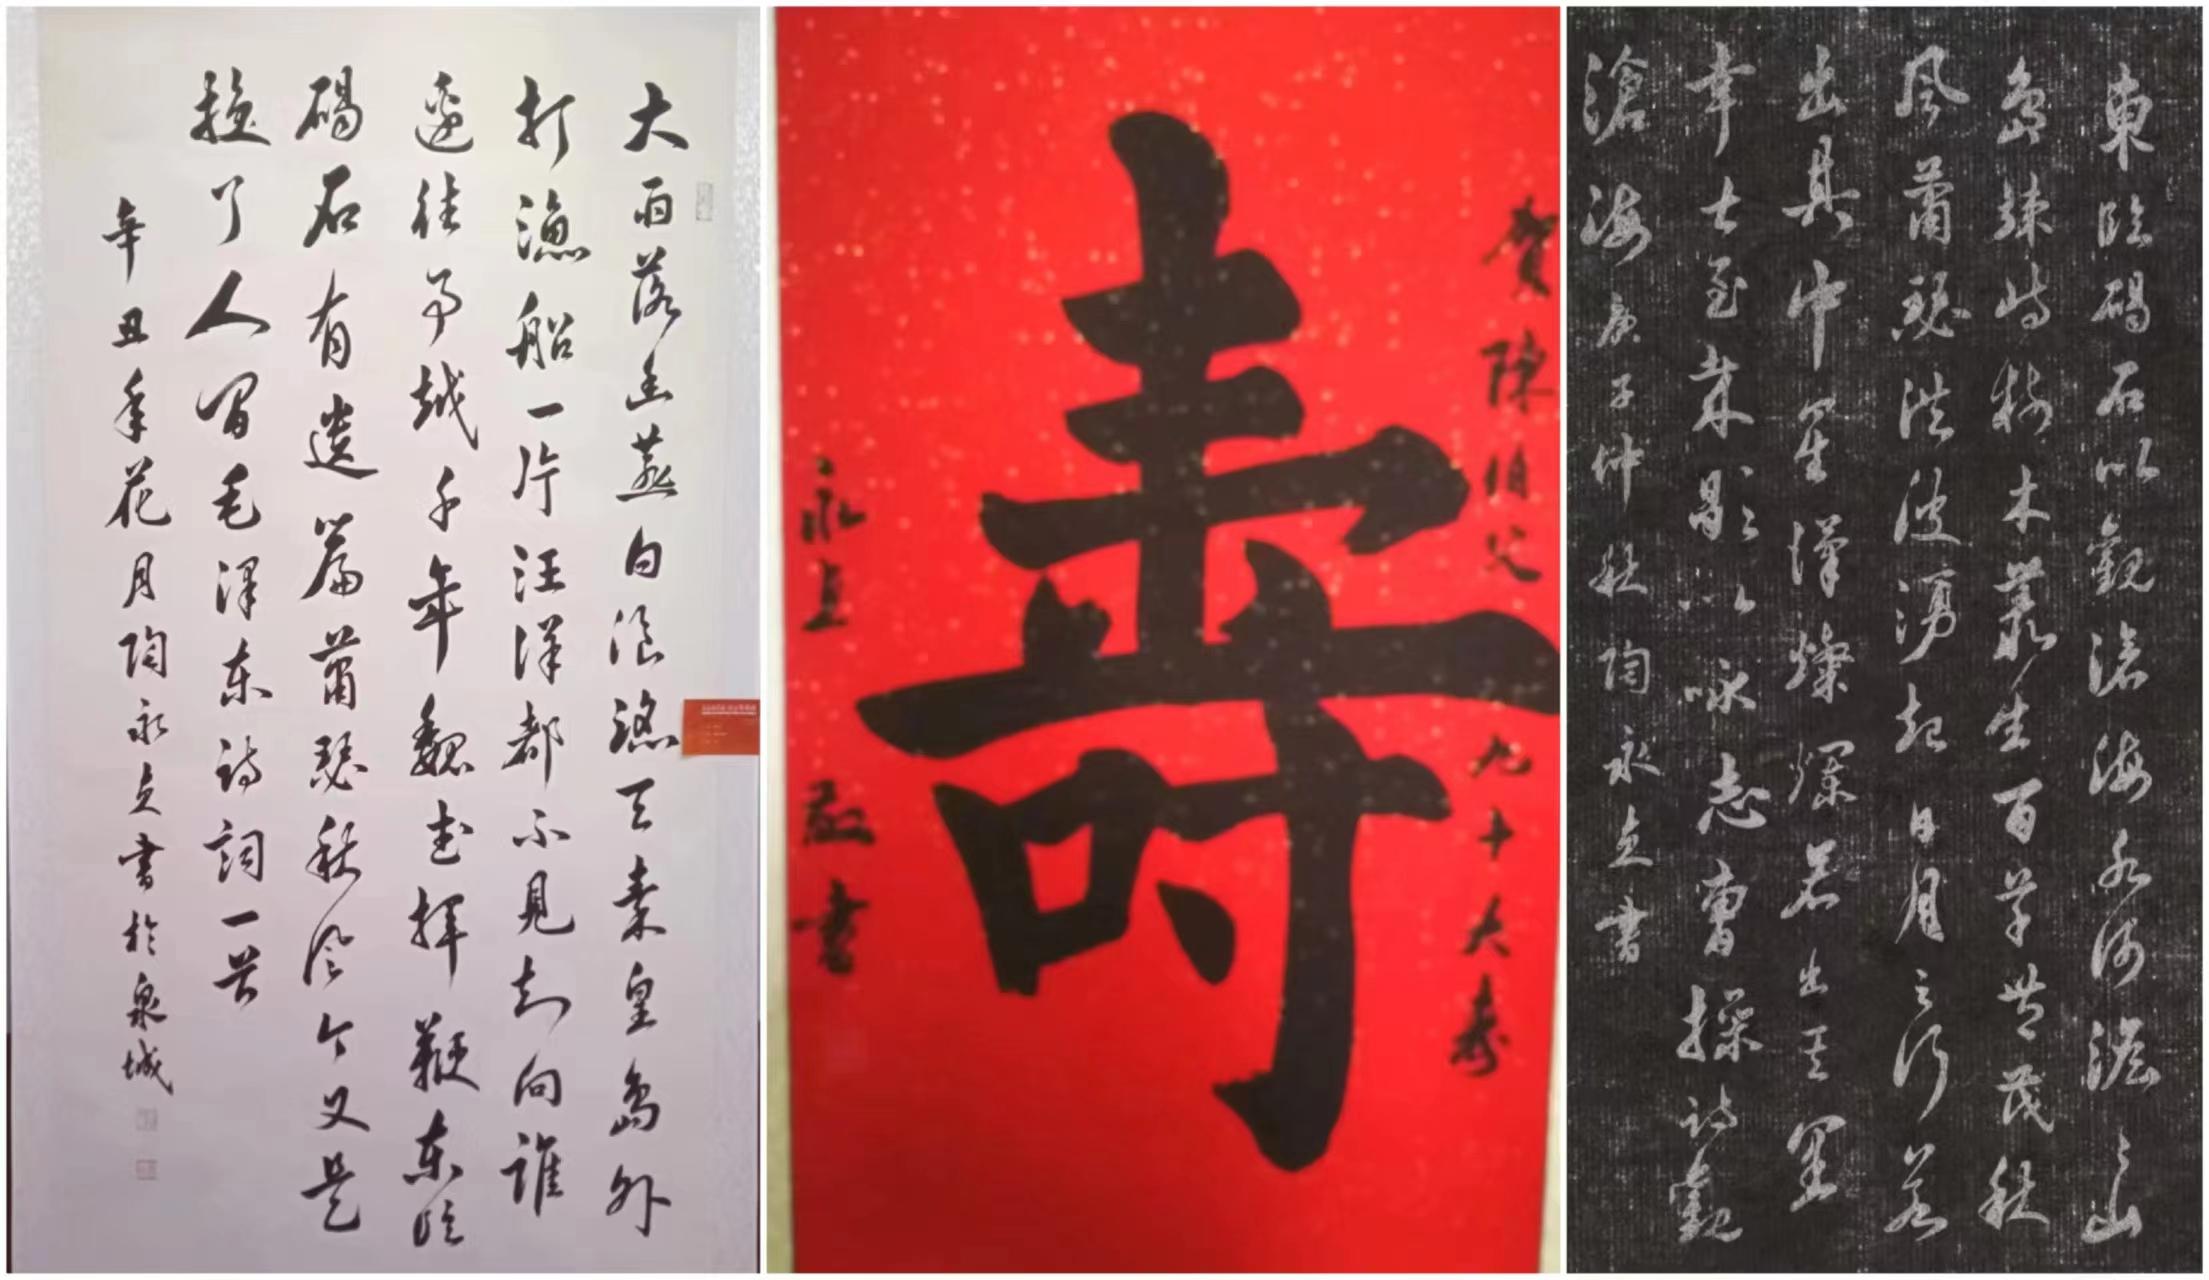 大雨落幽燕白浪滔天秦皇島外
打漁船一片汪洋都不見知向誰
邊往事越千年魏武揮鞭東臨
碣石有遺篇蕭瑟秋風今又是
換了人間毛澤東詩詞一首
辛丑年花月陶永立書於泉城
賀陳伯父九十大寿
寿
永立敬書
東臨碣石以觀滄海水何澹々山
島竦峙樹木叢生百草豐茂秋
風蕭瑟洪波湧起日月之行若
出其中星漢燦爛若出其里
幸甚至哉歌以咏志曹操詩觀
滄海庚子仲秋陶永立書